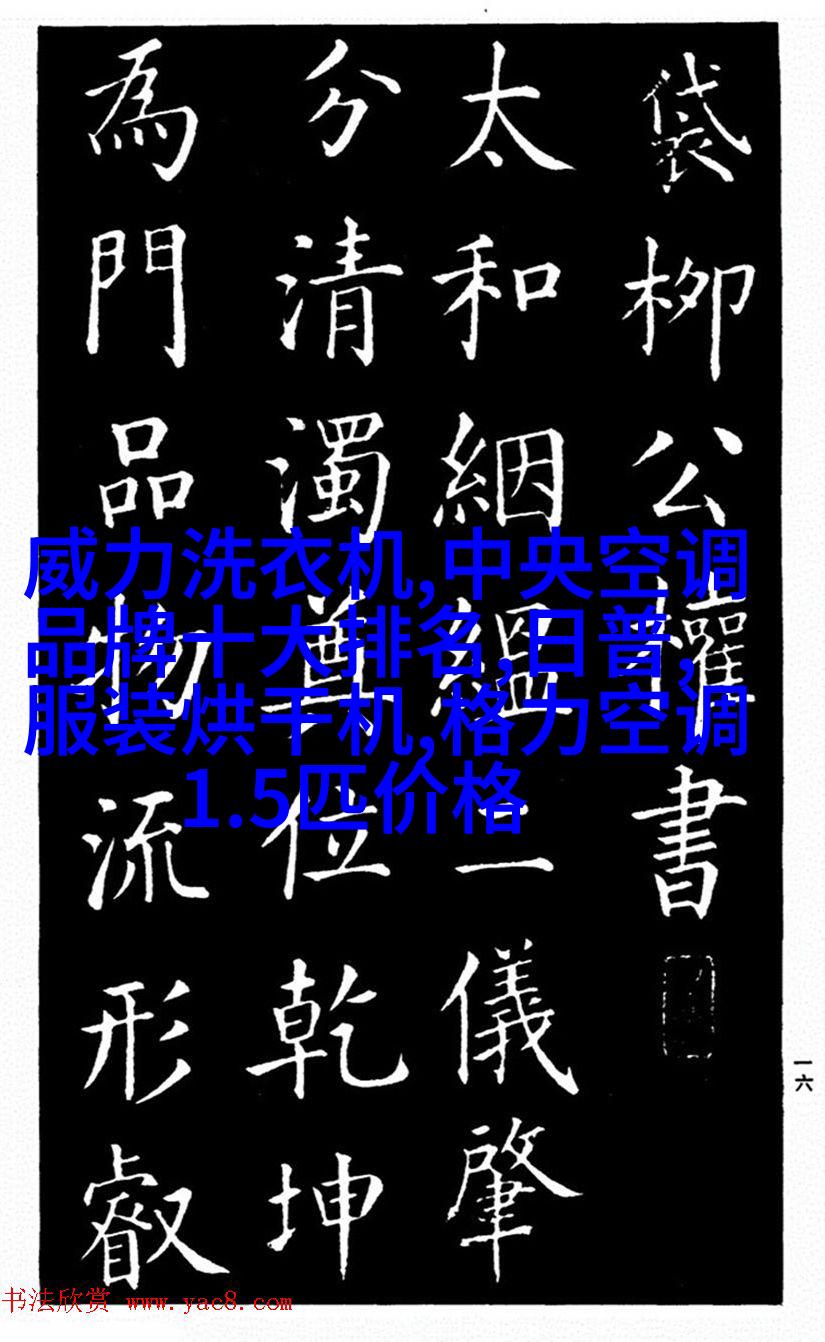 袋柳公權書
太和絪縕二儀肇
分清濁奠位乾坤
為門品物流形叡
威力洗衣机,中央空调
品牌十大排名,日普,
服装烘干机,格力空调
1.5匹价格
一六
书法欣赏 www.yac8.com